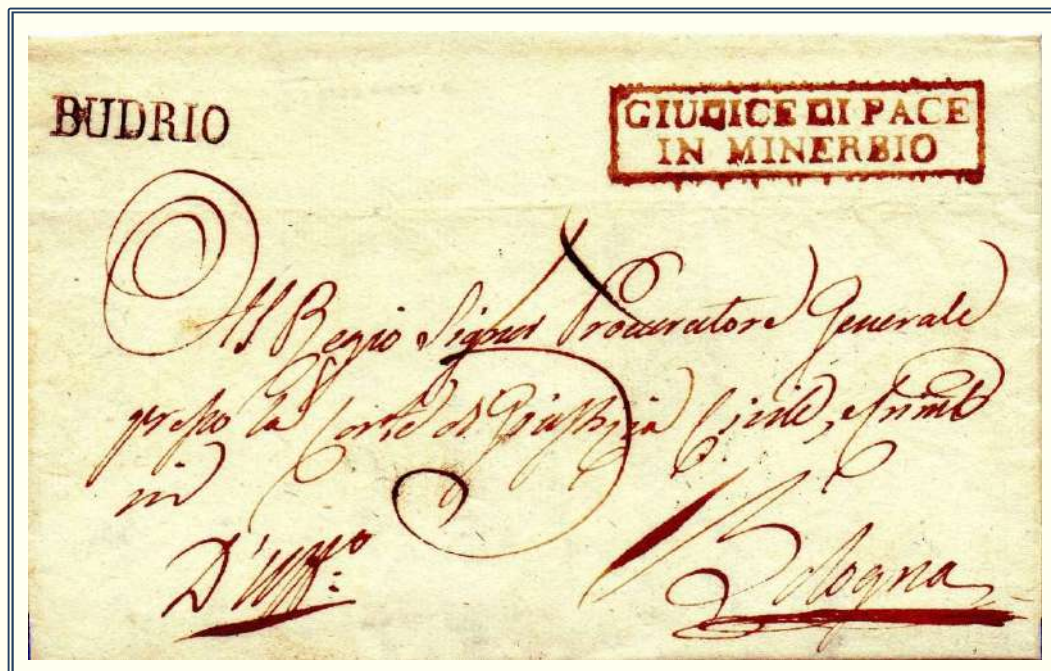 BUDRIO
GIUDICE DI PACE
IN MINERBIO
Al Regio Signor Procuratore Generale
presso la Corte di Giustizia Civile, e Crimle
in
D'Uffo.
Bologna